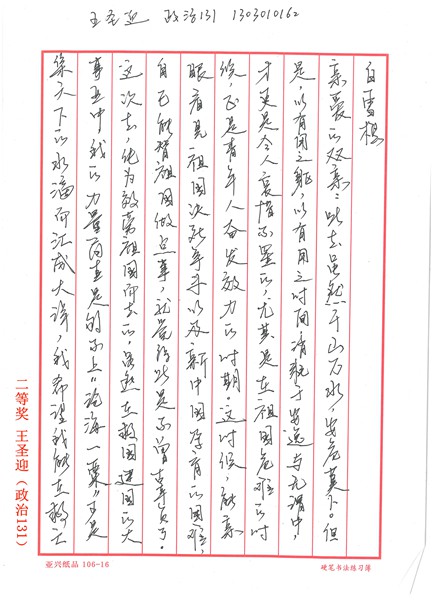 王圣迎 政治131 1303010162
白雪樵
亲爱的双亲：此去虽然千山万水，安危莫卜。但
是，以有用之躯，以有用之时间，消耗于安逸与无谓中，
才更是令人哀惜不置的，尤其是在祖国危难的时
候，正是青年人奋发效力的时期。这时候，能亲
眼看见祖国决死争斗以及新中国孕育的困难，
自己能替祖国做点事，就觉得此是不曾辜负了。
这次去，纯为效劳祖国而去的，虽然在救国建国的大
事业中，我的力量简直是够不上“沧海一粟”，可是
集天下的水滴而汇成大洋，我希望我能在救亡
二等奖 王圣迎（政治131）
亚兴纸品 106-16
硬笔书法练习簿